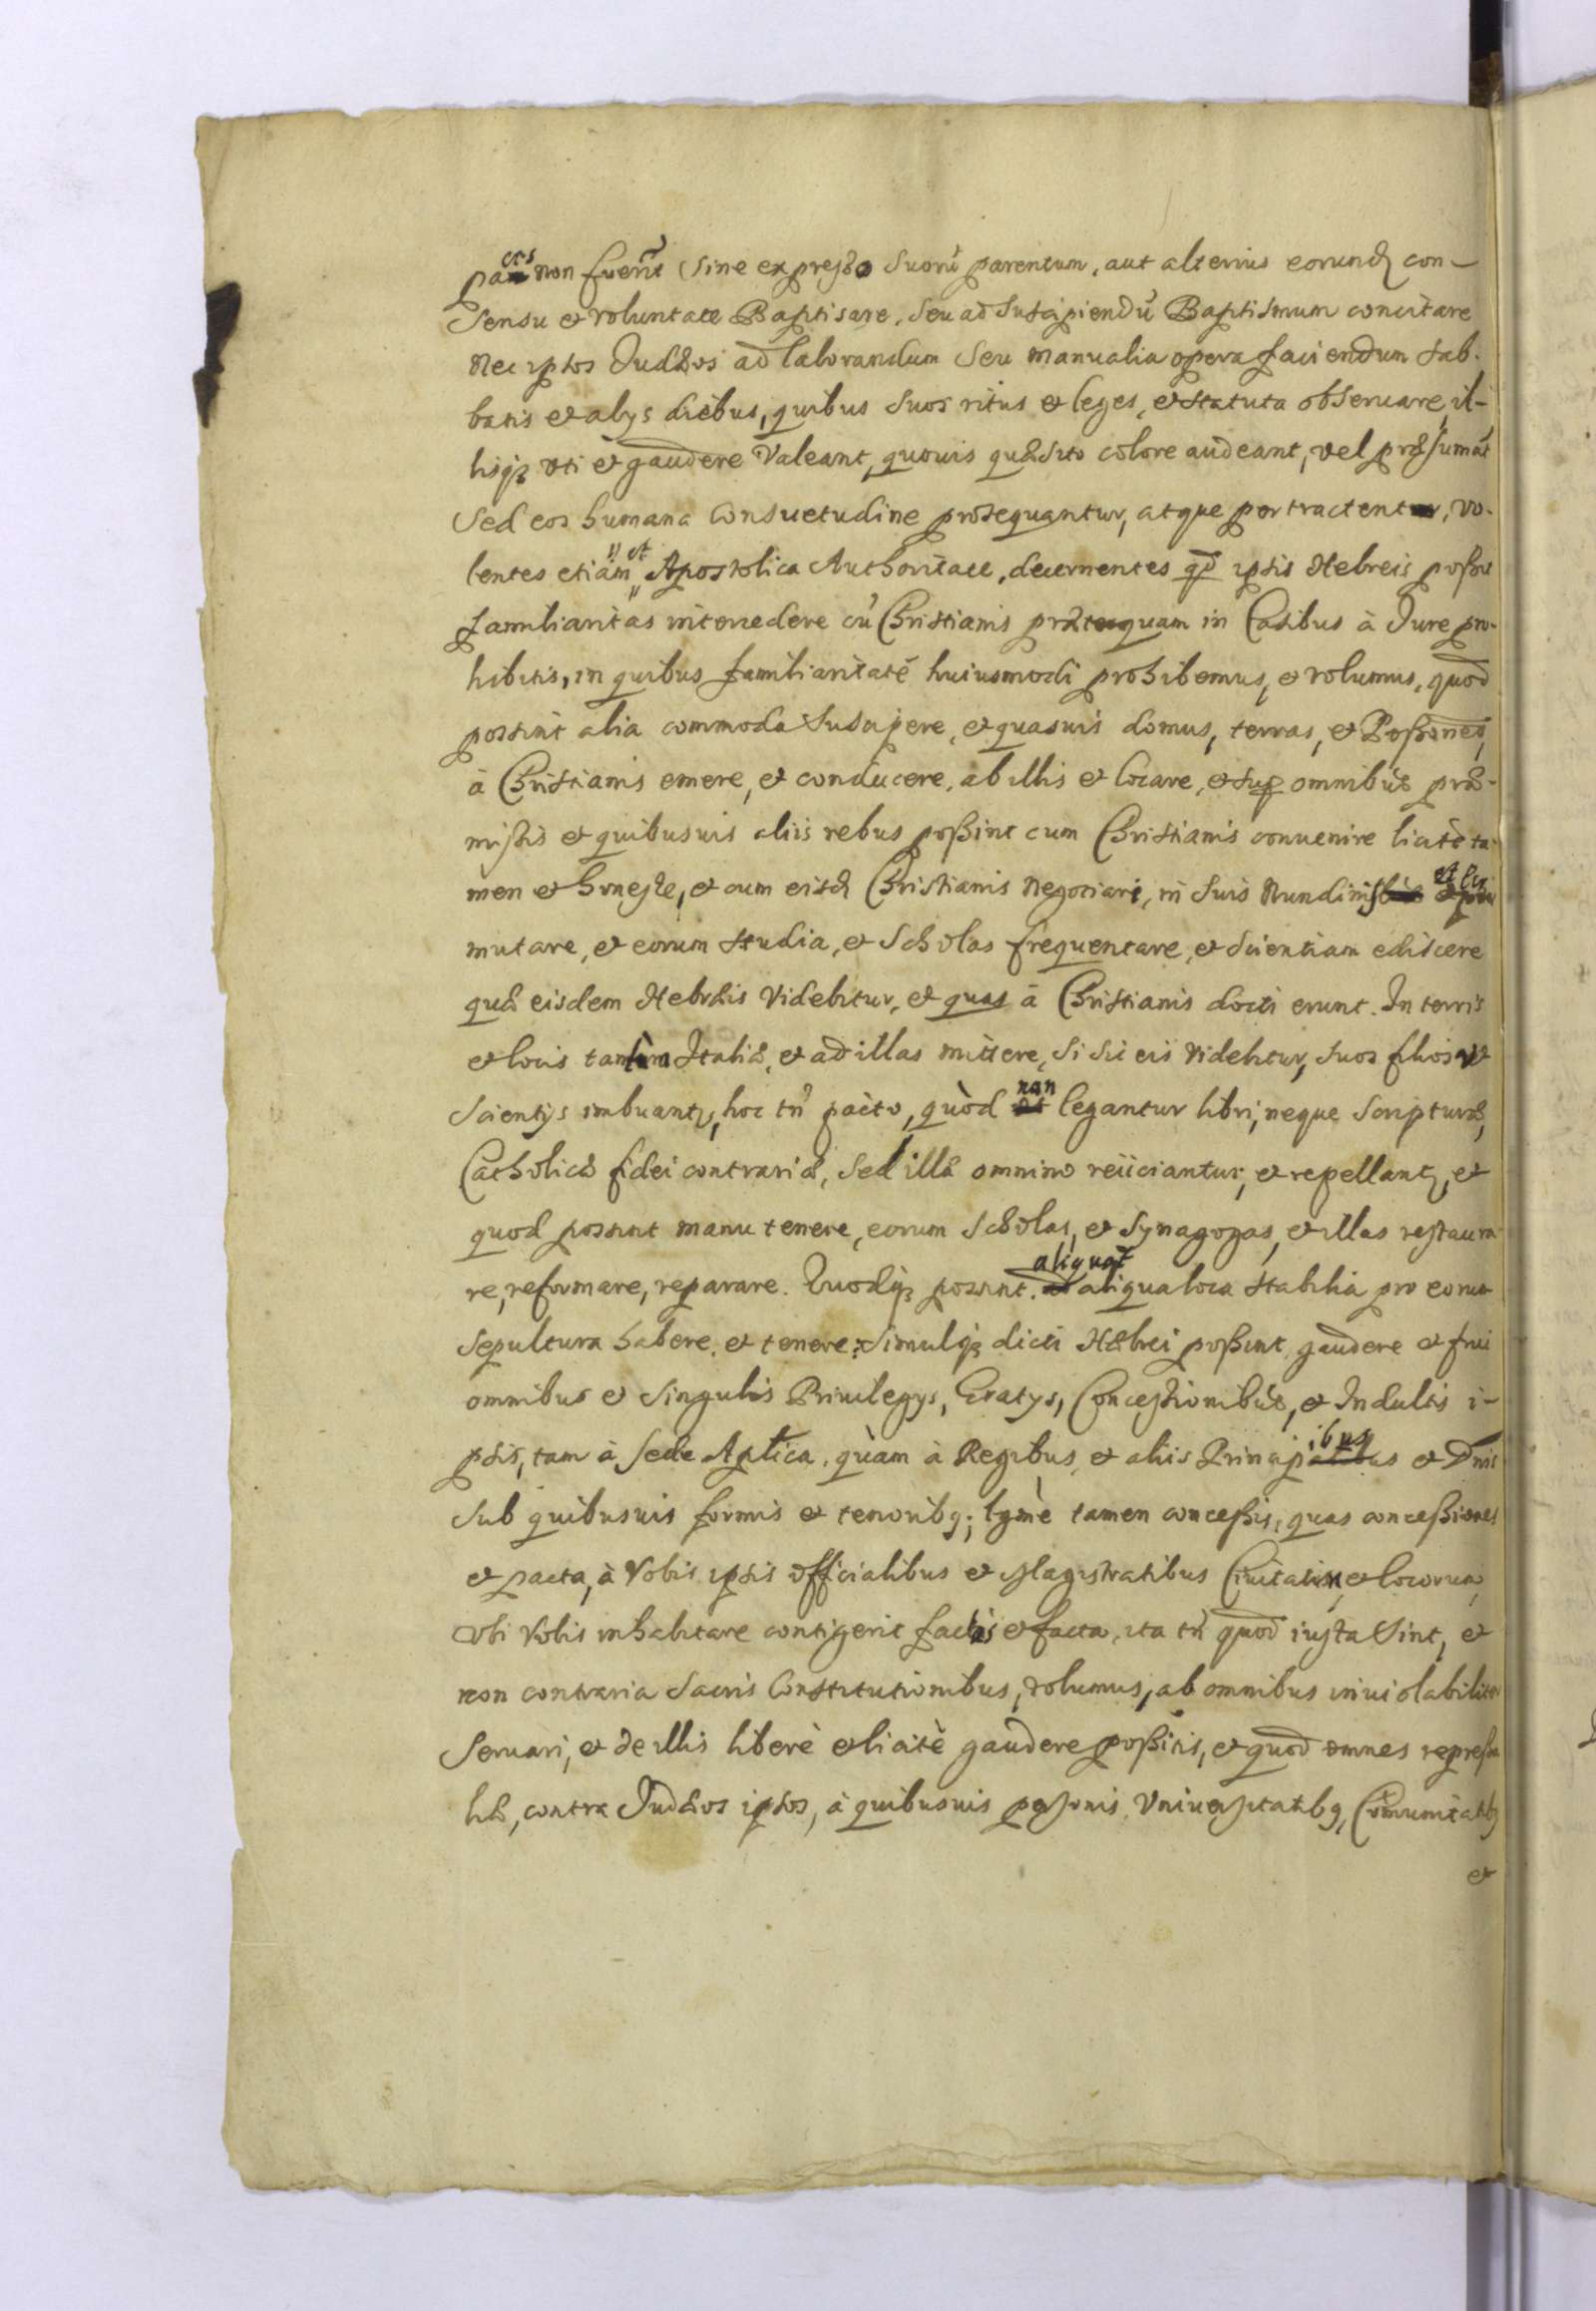 paces non fuerīt (sine expresso suorū parentum, aut alterius eorund con-
sensu et voluntate Baptisare, seu ad suscipiendū Baptismum concitare
Nec ipsos Judæos ad laborandum seu manualia opera faciendum sab-
batis et alijs diebus, quibus suos ritus et leges, et statuta obseruare, il-
lisq; vti et gaudere valeant, quouis quæsito colore audeant, vel præsumāt
Sed eos humana consuetudine prosequantur, atque pertractent, vo-
lentes etiam et Apostolica Authoritate, decernentes qd ipsis Hebreis posse
familiaritas intercedere cū Christianis præterquam in Casibus à Jure pro-
hibitis, in quibus familiaritatē huiusmodi prohibemus, et volumus, quod
possint alia commoda suscipere, et quasuis domus, terras, et Possones,
à Christianis emere, et conducere, ab illis et locare, et sup omnibus præ-
missis et quibusuis aliis rebus possint cum Christianis conuenire licitè ta-
men et honeste, et cum eisd Christianis negociari, in suis Nundinis
mutare, et eorum studia, et scholas frequentare, et scientiam ediscere
quæ eisdem Hebræis videbitur, et quas à Christianis docti erunt. In terris
et locis tantùm Italiæ, et ad illas mittere, si sic eis videbitur, suos filios vt
scientijs imbuant, hoc tn pacto, quòd non legantur libri, neque scripturæ,
Catholicæ fidei contrariæ, sed illæ omnino reiiciantur, et repellant, et
quod possint manu tenere, eorum scholas, et Synagogas, et illas restaura-
re, reformare, reparare. Quodq; possint. aliquot aliqua loca stabilia pro eorum
sepultura habere, et tenere: Simulq; dicti Hæbrei possint gaudere et frui
omnibus et singulis Priuilegijs, Gratijs, Concessionibus, et Indultis i-
psis, tam à sede Aplica, quàm à Regibus, et aliis Principibus et Dnis
sub quibusuis formis et tenoribq; lgmè tamen concessis, quas concessiones
et pacta, à Vobis ipsis officialibus et Magistratibus Ciuitatum, et locorum,
vbi Vobis inhabitare contigerit factis et facta, ita tn quod iusta sint, et
non contraria sacris Constitutionibus, volumus, ab omnibus inuiolabiliter
seruari, et de illis liberè et licitè gaudere possitis, et quod omnes represa
liæ, contra Judæos ipsos, à quibusuis psonis, Vniuersitatibq, Cōmunitatibq
et